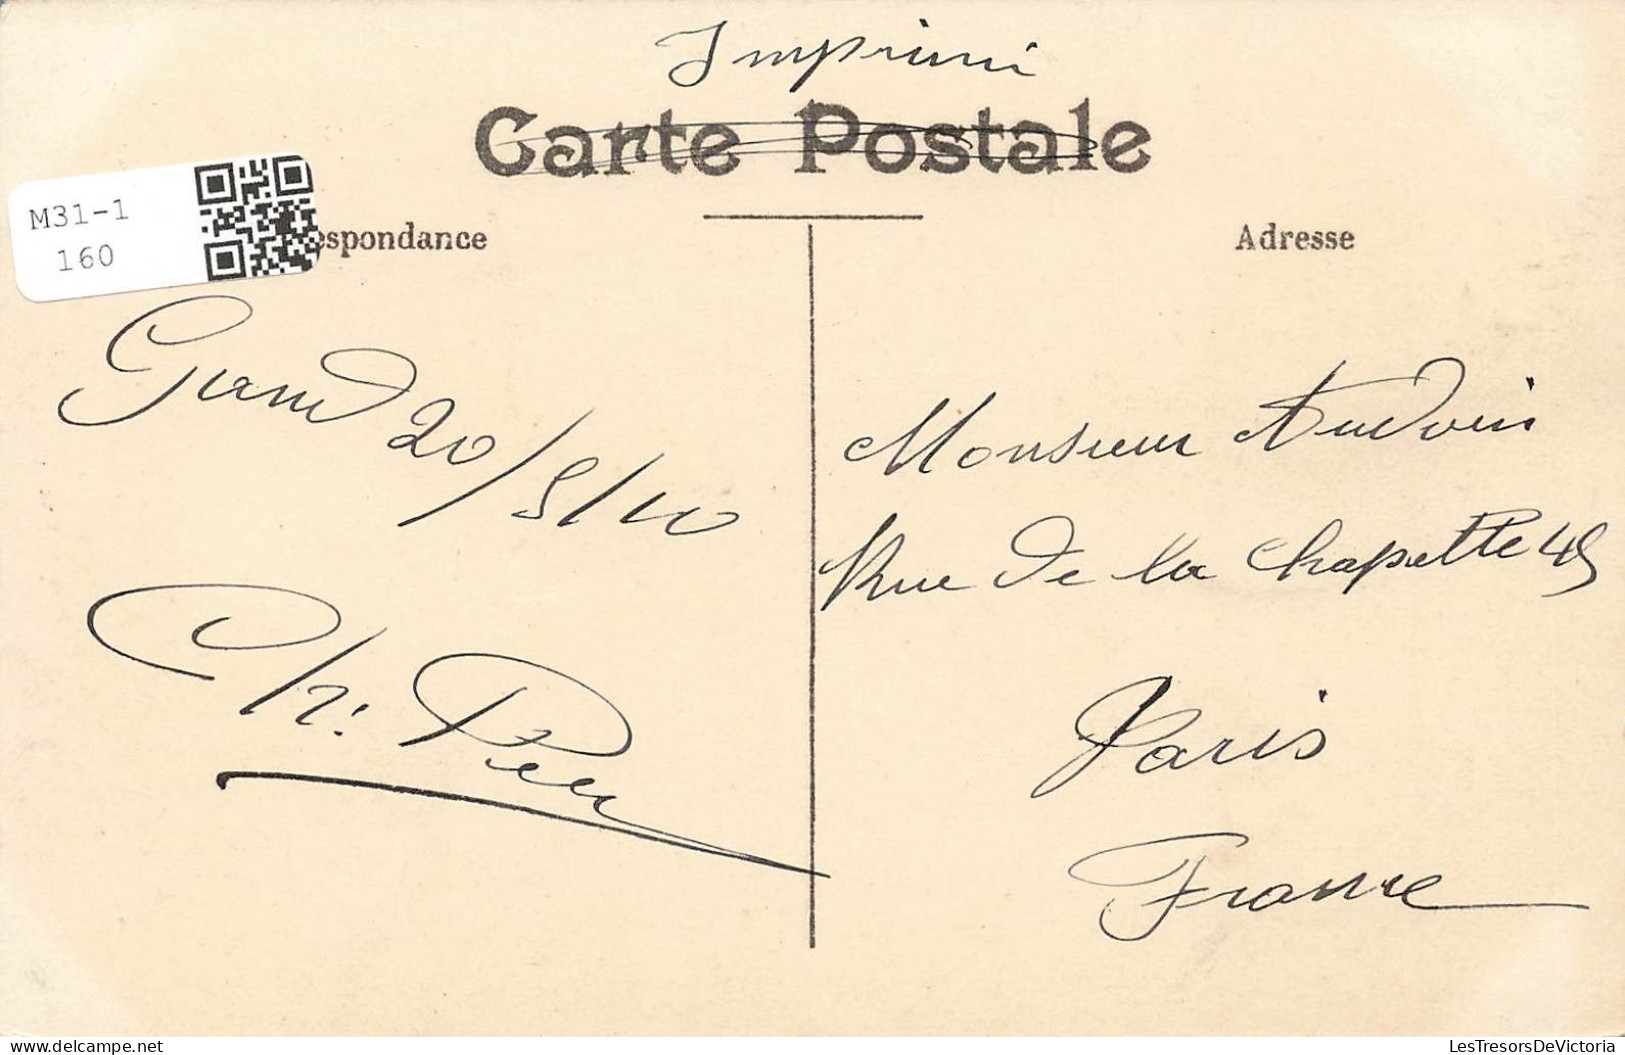 Imprimé
Carte Postale
M31-1
160
espondance
Adresse
Gand 20/5/10
Ch. 
Monsieur Audouin
Rue de la Chapelle 45
Paris
France
LesTresorsDeVictoria